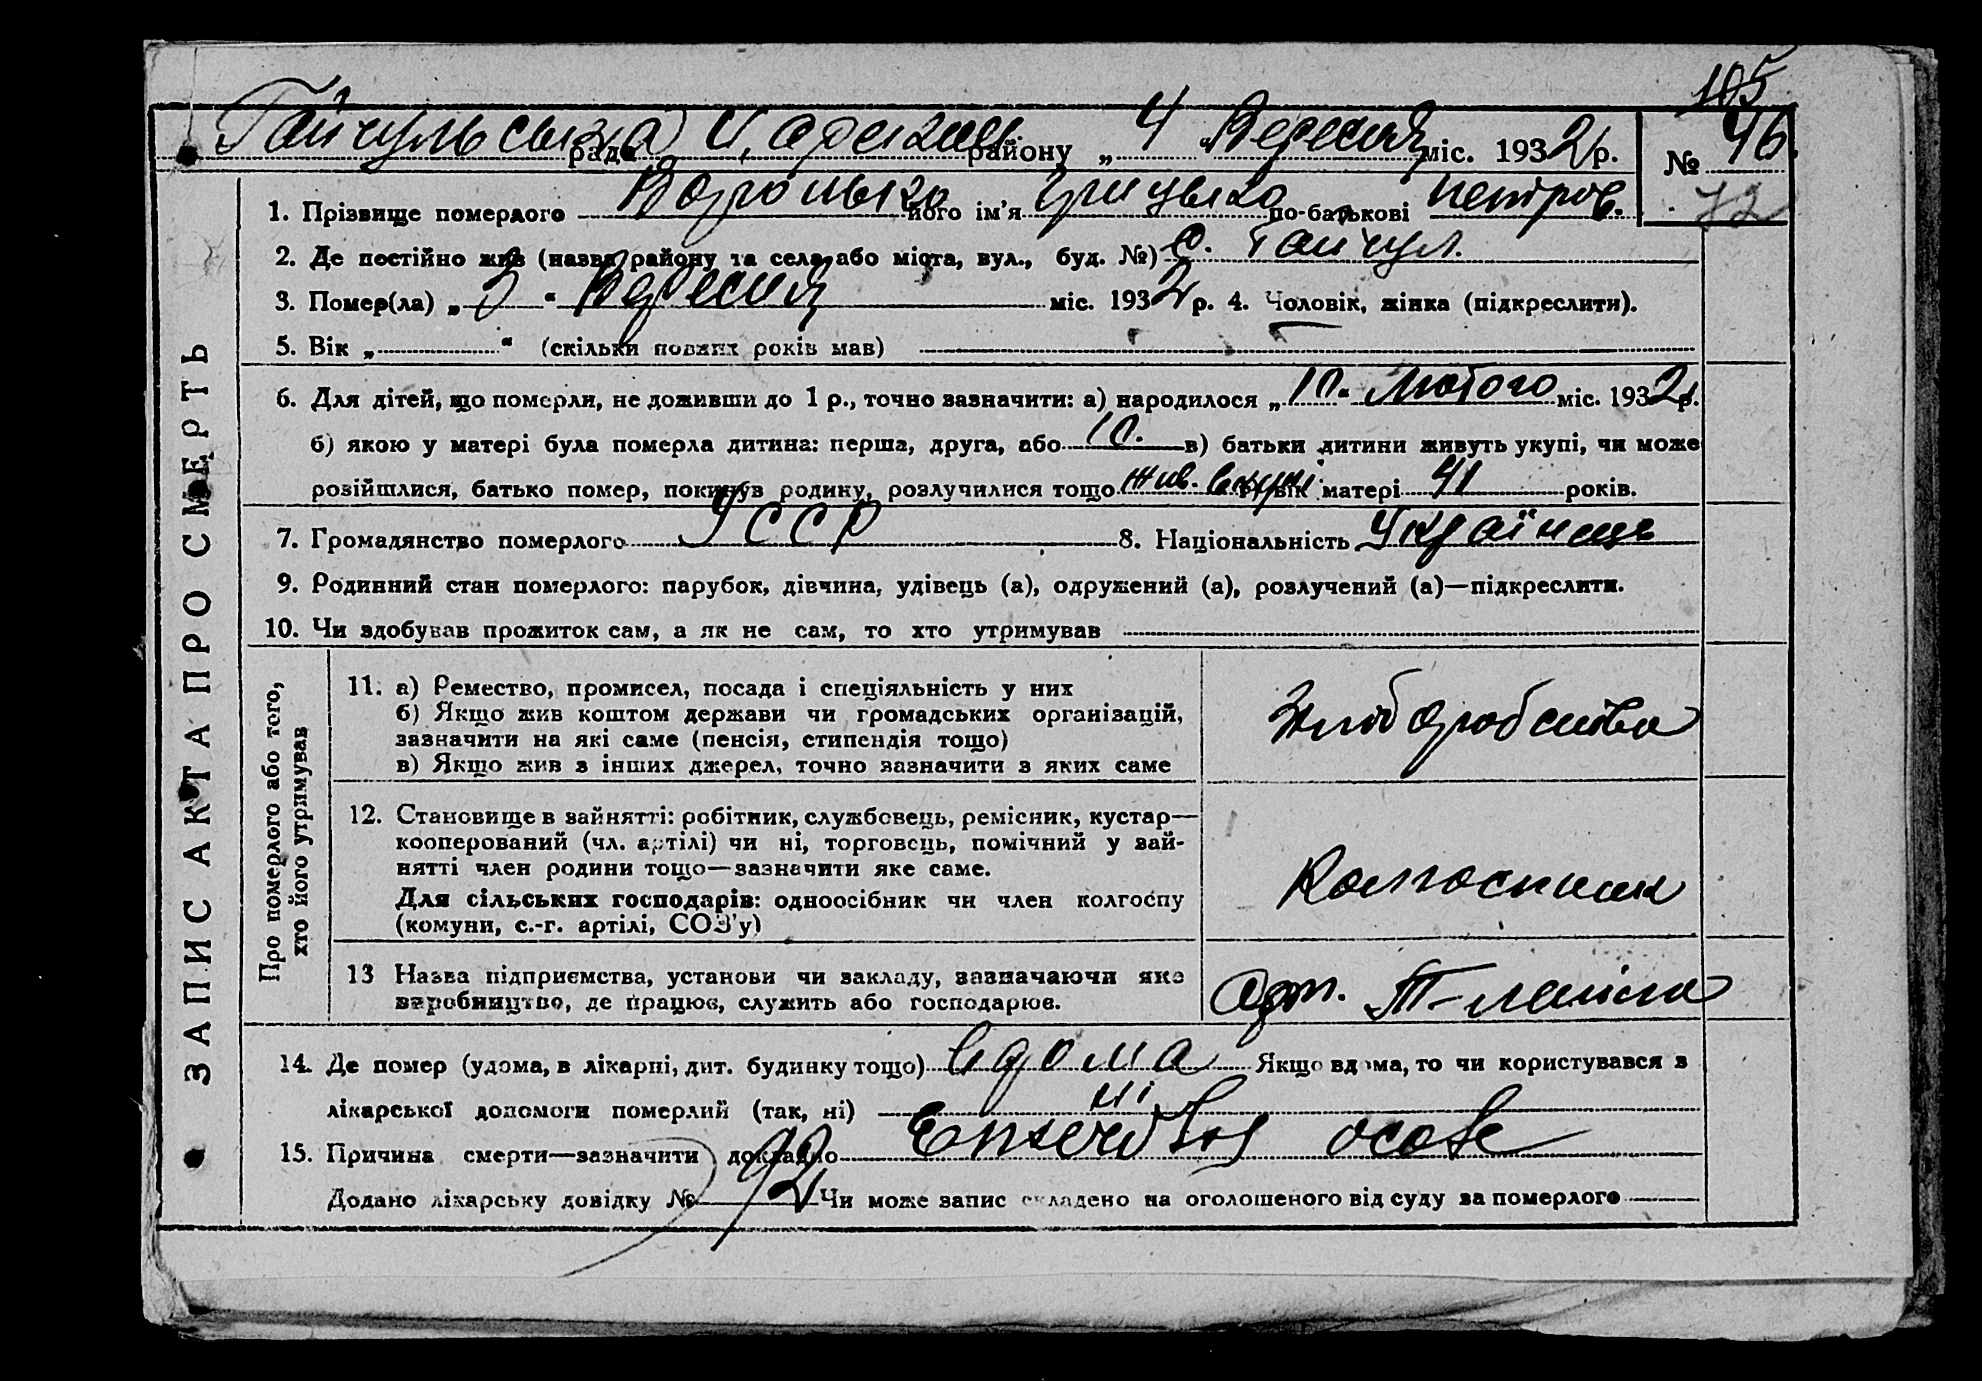 105
Гайчульська рада Царекон району „ 4 Вересня міс. 1932 р. № 46
72
1. Прізвище померлого його ім'я Грицько по-батькові Петров.
2. Де постійно жив (назва району та села або міста, вул., буд. №) с. Гайчул.
3. Помер(ла) „ 3 “ Вересня міс. 1932 р. 4. Чоловік, жінка (підкреслити).
5. Вік „ “ (скільки повних років мав)
6. Для дітей, що померли, не доживши до 1 р., точно зазначити: а) народилося „ 10 “ Лютого міс. 1932 р.
б) якою у матері була померла дитина: перша, друга, або 10. в) батьки дитини живуть укупі, чи може
розійшлися, батько помер, покинув родину, розлучилися тощо жив. вкупі г) вік матері 41 років.
7. Громадянство померлого УССР 8. Національність Українець
9. Родинний стан померлого: парубок, дівчина, удівець (а), одружений (а), розлучений (а)—підкреслити.
10. Чи здобував прожиток сам, а як не сам, то хто утримував
ЗАПИС АКТА ПРО СМЕРТЬ
Про померлого або того,
хто його утримував
11. а) Ремество, промисел, посада і спеціяльність у них
б) Якщо жив коштом держави чи громадських організацій,
зазначити на які саме (пенсія, стипендія тощо)
в) Якщо жив з інших джерел, точно зазначити з яких саме
Хліборобство
12. Становище в зайнятті: робітник, службовець, ремісник, кустар—
кооперований (чл. артілі) чи ні, торговець, помічний у зай-
нятті член родини тощо—зазначити яке саме.
Для сільських господарів: одноосібник чи член колгоспу
(комуни, с.-г. артілі, СОЗ'у)
Колгоспник
13 Назва підприємства, установи чи закладу, зазначаючи яке
виробництво, де працює, служить або господарює.
Арт.
14. Де помер (удома, в лікарні, дит. будинку тощо) вдома Якщо вдома, то чи користувався з
лікарської допомоги померлий (так, ні) ні
15. Причина смерти—зазначити докладно
Додано лікарську довідку № 92 Чи може запис складено на оголошеного від суду за померлого